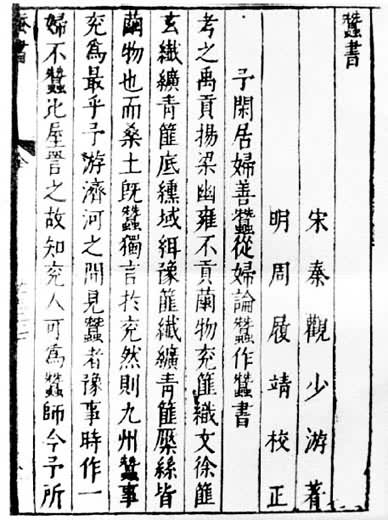 蠶書
宋秦觀少游著
明周履靖校正
予閑居婦善蠶從婦論蠶作蠶書
考之禹貢揚梁幽雍不貢繭物兖篚織文徐篚
玄纖纊青篚底纁域絍豫篚纖纊青篚檿絲皆
繭物也而桑土既蠶獨言於兖然則九州蠶事
兖為最乎予游濟河之間見蠶者豫事時作一
婦不蠶比屋詈之故知兖人可為蠶師今予所